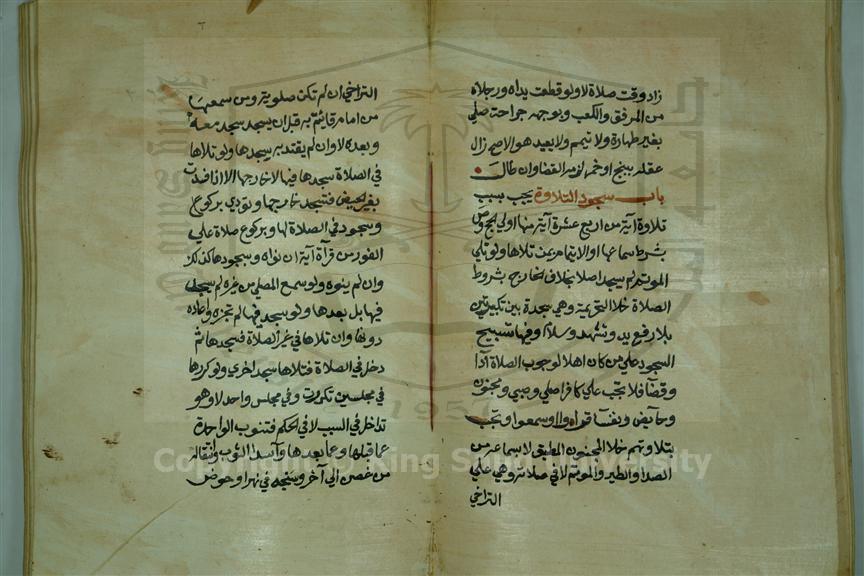 زاد وقت صلاة لا ولو قطعت يداه ورجلاه
من المرفق والكعب وبوجهه جراحة صلي
بغير طهارة ولا تيمم ولا يعيد هو الاصح زال
عقله ببنج او خمر لزمه القضا وان طالت
باب سجود التلاوة يجب بسبب
تلاوة آية من اربع عشرة آية منها اولي الحج وص
بشرط سماعها او الايتمام بمن تلاها ولو تلي
الموتم لم يسجد اصلا بخلاف الخارج بشروط
الصلاة خلا التحريمة وهي سجدة بين تكبيرتين
بلا رفع يد وتشهد وسلام وفيها تسبيح
السجود علي من كان اهلا لوجوب الصلاة آدا
وقضا فلا تجب علي كافر اصلي وصبي ومجنون
وحايض ونفسا قراوا او سمعوا وتجب
بتلاوتهم خلا المجنون المطبق لا بسماعه من
الصدا والطير والموتم لا في صلاته وهي علي
التراخي
التراخي ان لم تكن صلوية ومن سمعها
من امام فايتم به قبل ان يسجد سجد معه
وبعده لا وان لم يقتد به سجدها ولو تلاها
في الصلاة سجدها فيها لا خارجها الا اذا فسدت
بغير الحيض فتسجد خارجها وتؤدي بركوع
وسجود في الصلاة لها وبركوع صلاة علي
الفور من قرآة آية ان نواه وسجودها كذلك
وان لم ينوه ولو سمع المصلي من غيره لم يسجد
فيها بل بعدها ولو سجد فيها لم تجزه واعاده
دونها وان تلاها في غير الصلاة فسجدها ثم
دخل في الصلاة فتلاها سجد اخري ولو كررها
في مجلسين تكررت وفي مجلس واحد لا وهو
تداخل في السبب لا في الحكم فتنوب الواحدة
عما قبلها وعما بعدها واسدا الثوب وانتقاله
من غصن الي آخر وسبحه في نهر او حوض
Copyright © King Saud University
1957